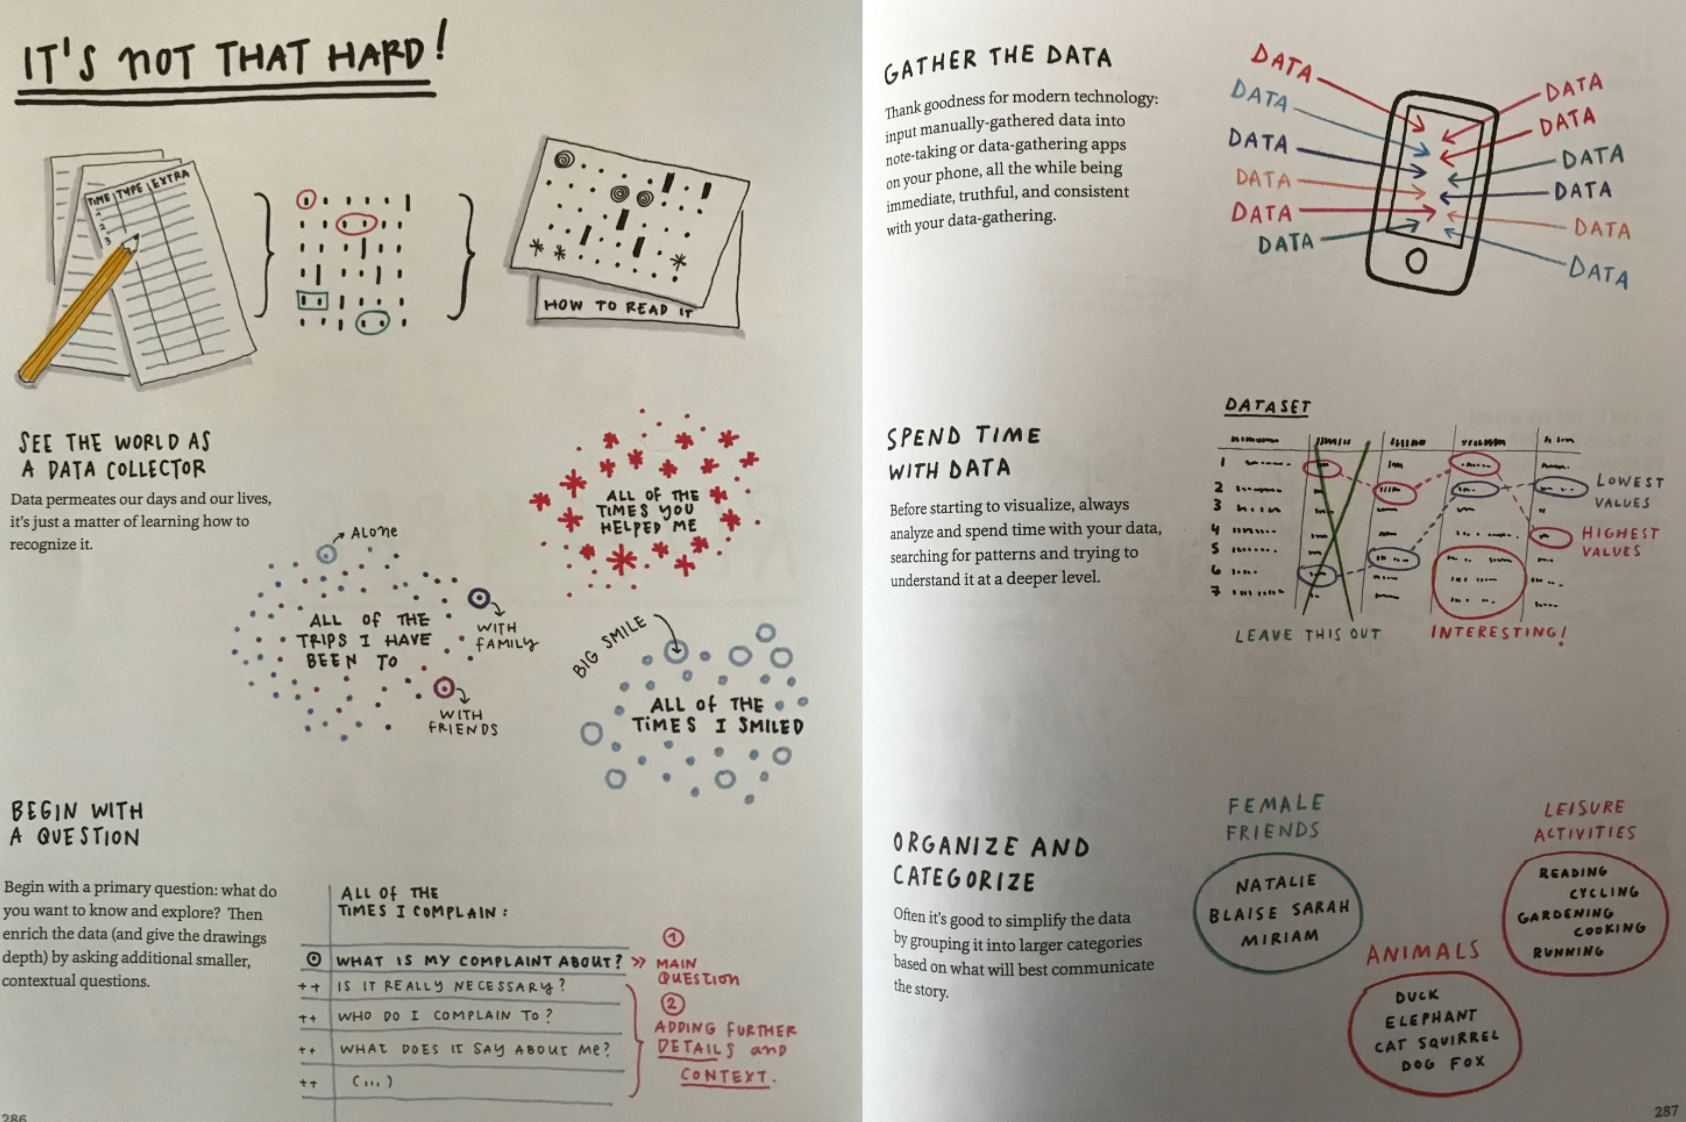 IT'S NOT THAT HARD!
TIME TYPE EXTRA
HOW TO READ IT
SEE THE WORLD AS
A DATA COLLECTOR
Data permeates our days and our lives,
it's just a matter of learning how to
recognize it.
ALL OF THE
TIMES YOU
HELPED ME
ALONE
ALL OF THE
TRIPS I HAVE
BEEN TO
WITH
FAMILY
WITH
FRIENDS
BIG SMILE
ALL OF THE
TIMES I SMILED
BEGIN WITH
A QUESTION
Begin with a primary question: what do
you want to know and explore? Then
enrich the data (and give the drawings
depth) by asking additional smaller,
contextual questions.
ALL OF THE
TIMES I COMPLAIN:
WHAT IS MY COMPLAINT ABOUT? »
++ IS IT REALLY NECESSARY?
++ WHO DO I COMPLAIN TO?
++ WHAT DOES IT SAY ABOUT ME?
++ (...)
1
MAIN
QUESTION
2
ADDING FURTHER
DETAILS and
CONTEXT.
286
GATHER THE DATA
Thank goodness for modern technology:
input manually-gathered data into
note-taking or data-gathering apps
on your phone, all the while being
immediate, truthful, and consistent
with your data-gathering.
DATA
DATA
DATA
DATA
DATA
DATA
DATA
DATA
DATA
DATA
DATA
DATA
SPEND TIME
WITH DATA
Before starting to visualize, always
analyze and spend time with your data,
searching for patterns and trying to
understand it at a deeper level.
DATASET
1
2
3
4
5
6
7
LOWEST
VALUES
HIGHEST
VALUES
LEAVE THIS OUT
INTERESTING!
ORGANIZE AND
CATEGORIZE
Often it's good to simplify the data
by grouping it into larger categories
based on what will best communicate
the story.
FEMALE
FRIENDS
NATALIE
BLAISE SARAH
MIRIAM
LEISURE
ACTIVITIES
READING
CYCLING
GARDENING
COOKING
RUNNING
ANIMALS
DUCK
ELEPHANT
CAT SQUIRREL
DOG FOX
287